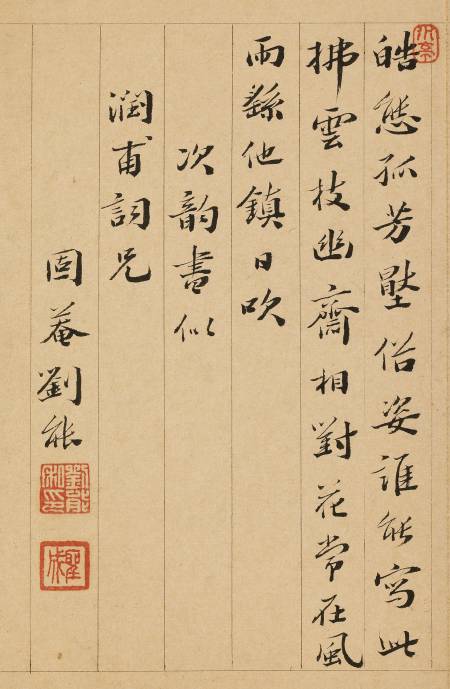 皓態孤芳壓俗姿誰能寫此
拂雲枝幽齋相對花常在風
雨繇他鎮日吹
次韵書似
潤甫詞兄
固菴劉能